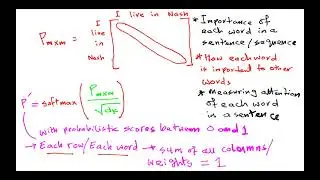 I live in Nash
I
live
in
Nash
P m×m =
* Importance of
each word in a
sentence/sequence
* How each word
is imported to other
words
* Measuring attention
of each word
in a sentence
P' = softmax ( P m×m / √dk )
with probabilistic scores between 0 and 1
→ Each row/Each word → sum of all columns/
weights = 1